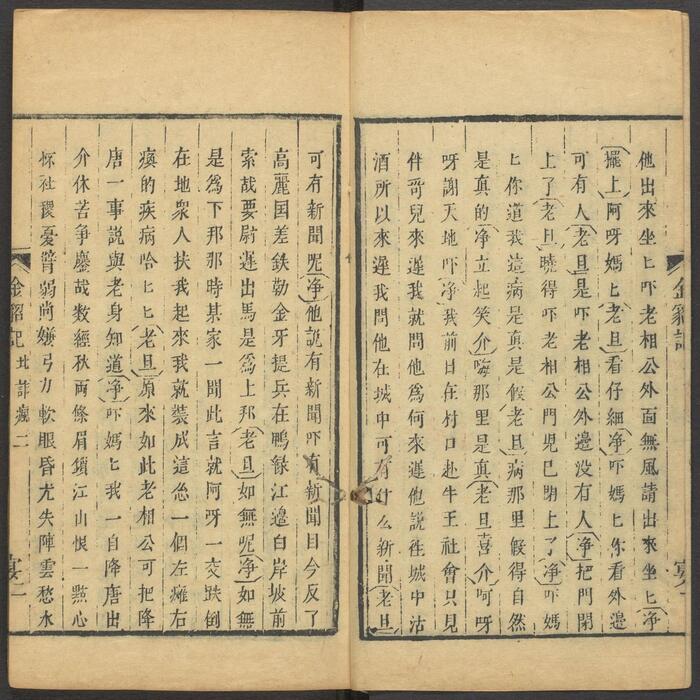 他出來坐匕吓老相公外面無風請出來坐匕淨
擺上阿呀媽匕老旦看仔細淨吓媽匕你看外邊
可有人老旦是吓老相公外邊没有人淨把門閉
上了老旦曉得吓老相公門児已閉上了淨吓媽
匕你道我這病是真是假老旦病那里假得自然
是真的淨立起笑介嗨那里是真老旦喜介呵呀
呀謝天地吓淨我前日在村口赴牛王社會只見
伴哥児來遲我就問他爲何來遲他説徃城中沽
酒所以來遲我問他在城中可有什么新聞老旦
可有新聞呢淨他説有新聞吓有新聞目今反了
高麗国差鉄勒金牙提兵在鴨緑江邉白岸坡前
索战要尉遲出馬是爲上邦老旦如無呢淨如無
是爲下邦那時某家一聞此言就阿呀一交跌倒
在地衆人扶我起來我就裝成這怹一個左癱右
瘓的疾病哈匕匕老旦原來如此老相公可把降
唐一事説與老身知道淨吓媽匕我一自降唐出
介休苦争鏖战数經秋两條眉鎖江山恨一㸃心
懷社稷憂臂弱尚嫌弓力軟眼昏尤失陣雲愁水
金貂記
金貂記 北詐瘋 二